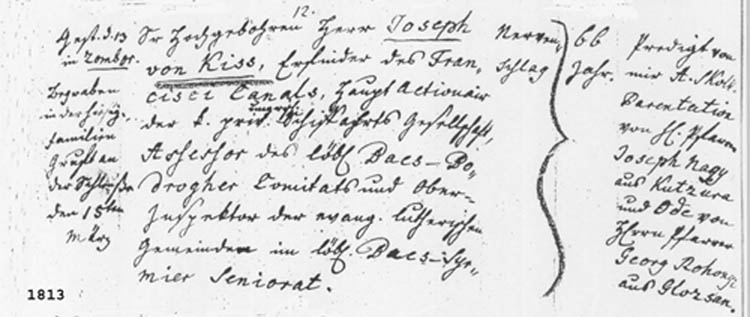 12.
Gest. d. 13
in Zombor.
Begraben
in der hiesig.
Familien
Gruft an
der Schleuße
den 15ten
März
Sr Hochgebohren Herr Joseph
von Kiss, Erfinder des Fran-
cisci Canals, Haupt Actionair
der k. priv. ungar. Schiffahrts Gesellschaft,
Assessor des löbl. Bacs-Bo-
drogher Comitats und Ober-
Inspektor der evang. lutherischen
Gemeinden im löbl. Bacs-Syr-
mier Seniorat.
Nerven-
schlag
66
Jahr.
Predigt von
mir A. Skolt.
Parentation
von H. Pfarrer
Joseph Nagy
aus Kutzura
und Ode von
Herrn Pfarrer
Georg Rohony
aus Glozsan.
1813